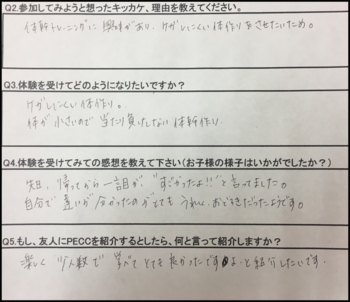 Q2.参加してみようと想ったキッカケ、理由を教えてください。
体幹トレーニングに興味があり、ケガしにくい体作りをさせたいため。
Q3.体験を受けてどのようになりたいですか?
ケガしにくい体作り。
体が小さいので当たり負けしない体幹作り
Q4.体験を受けてみての感想を教えて下さい(お子様の様子はいかがでしたか?)
先日、帰ってから一言目が、"すごかったよ!!"と言ってました。
自分で違いが分かったのがとてもうれしく、おどろきだったようです。
Q5.もし、友人にPECCを紹介するとしたら、何と言って紹介しますか?
楽しく少人数で学べてとても良かったですよ、と紹介したいです。